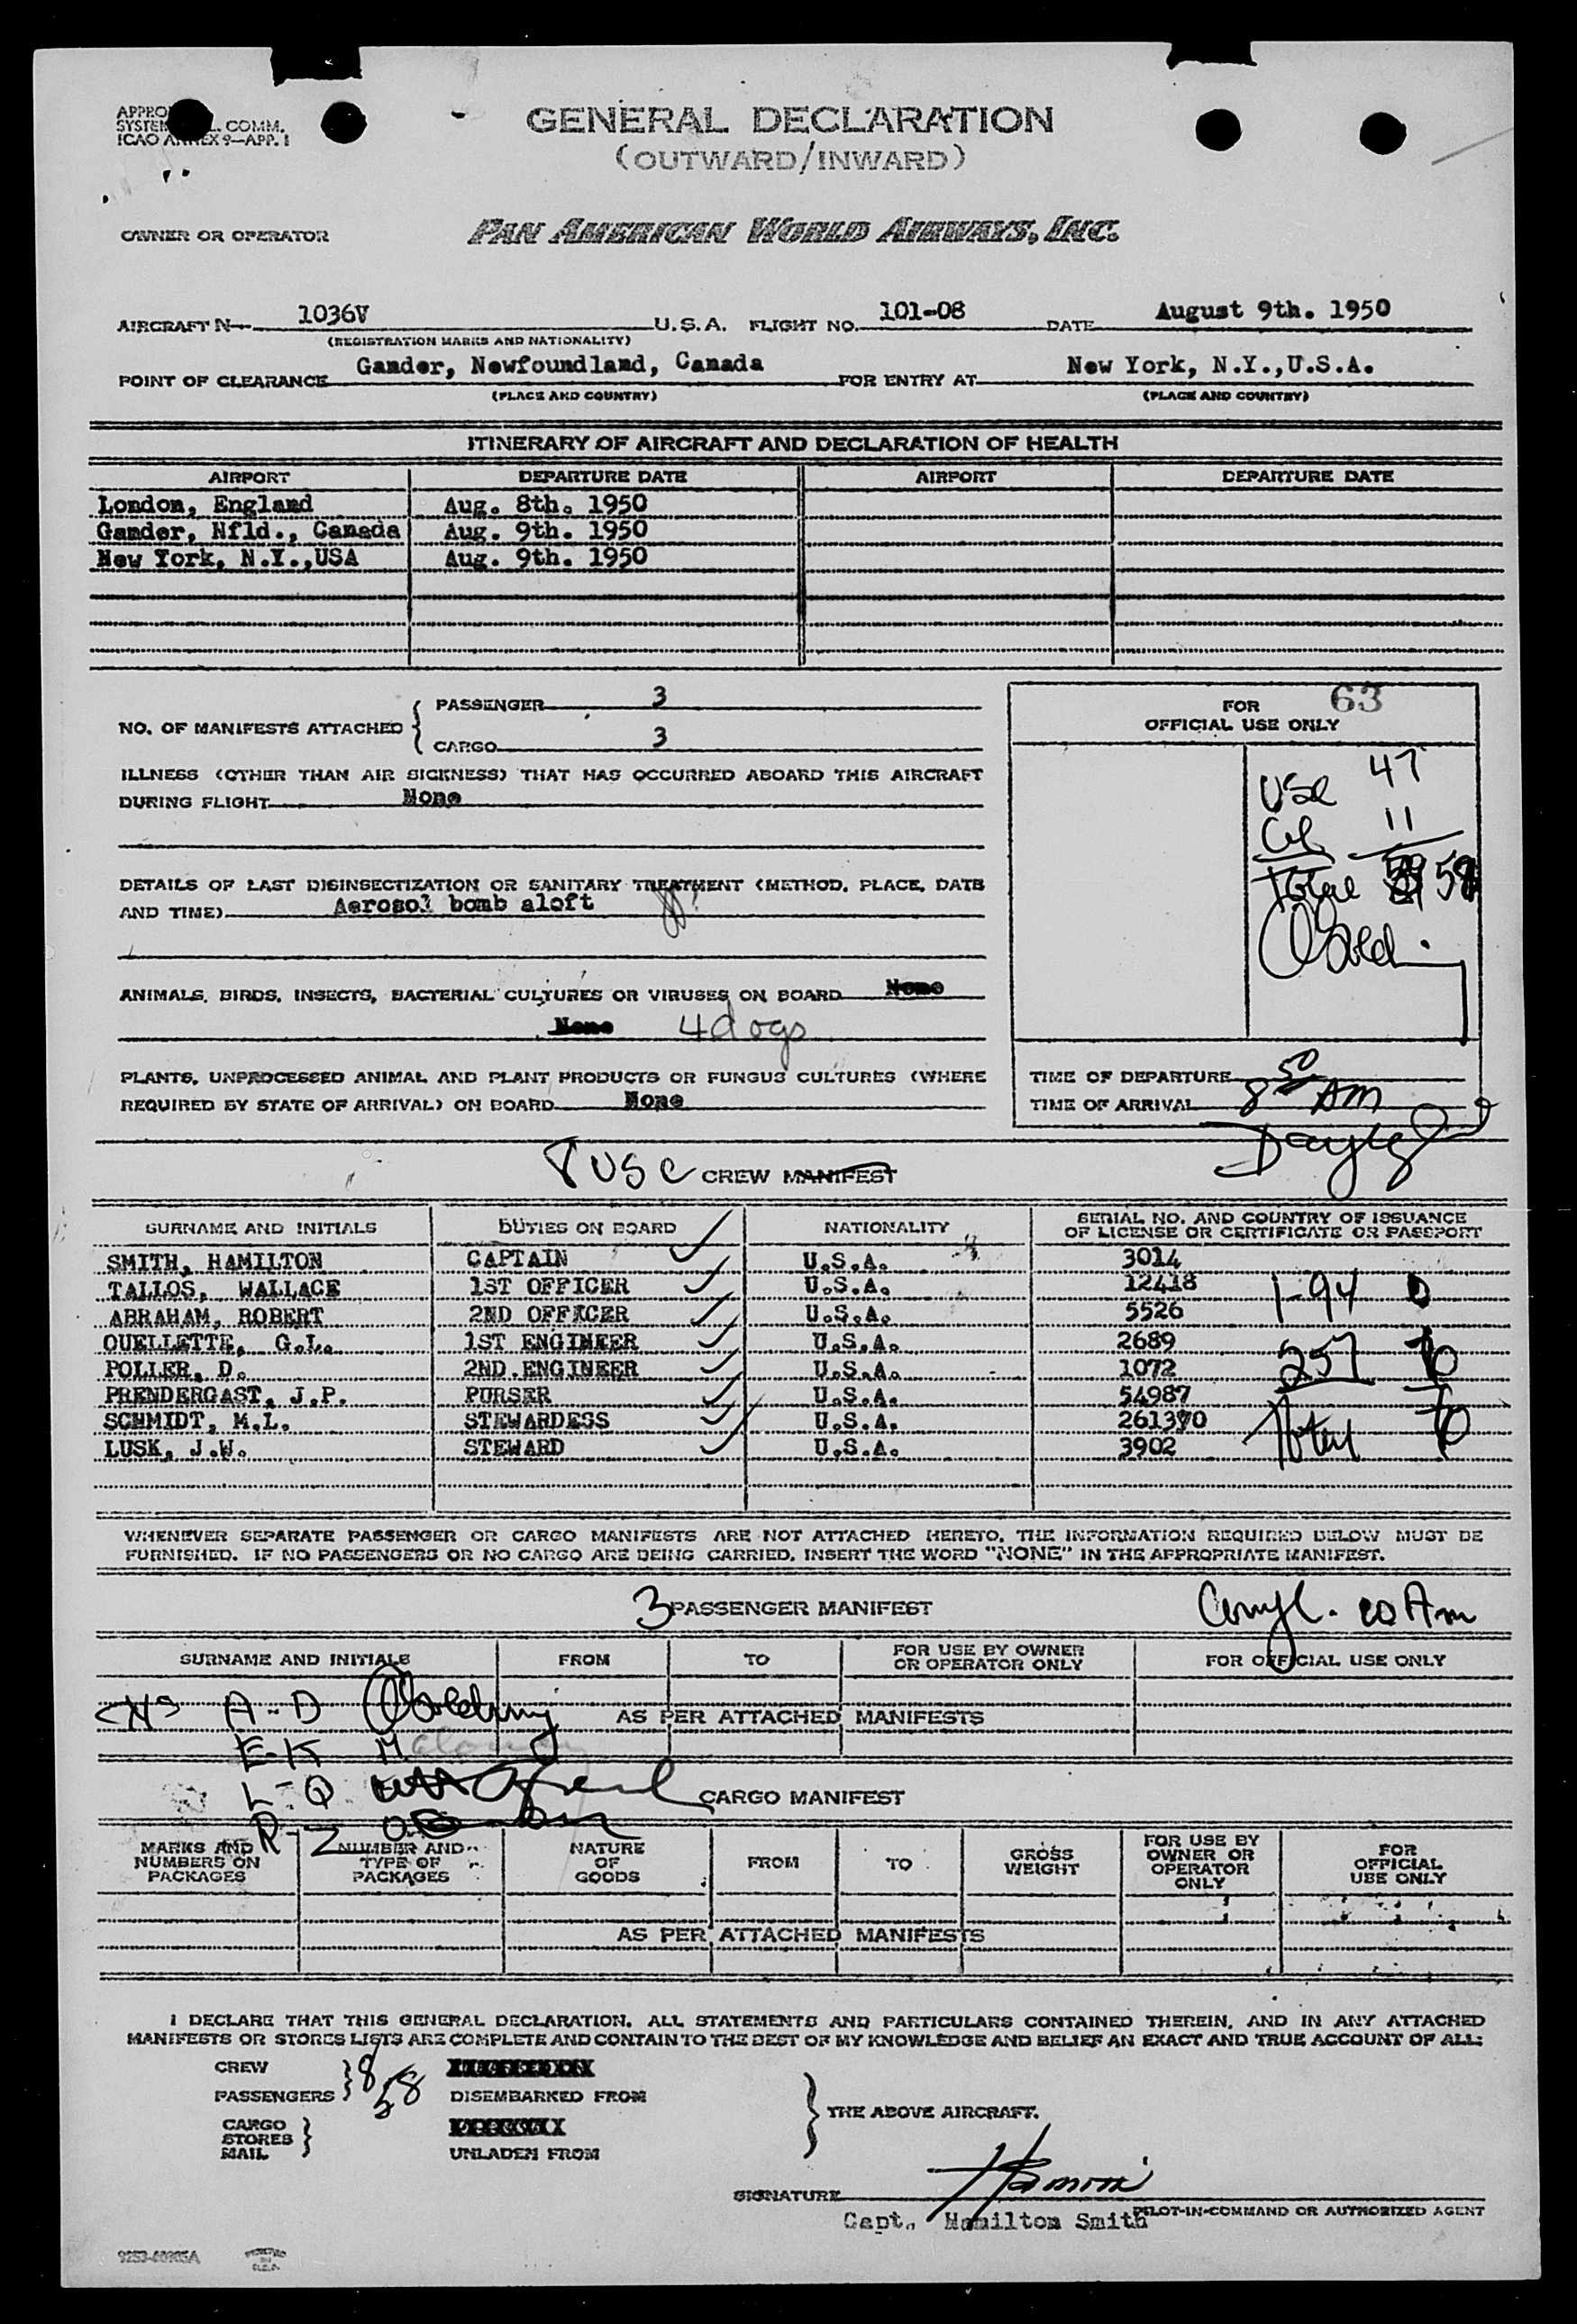 GENERAL DECLARATION
(OUTWARD/INWARD)
L. COMM.
ICAO ANNEX 9—APP. 1
OWNER OR OPERATOR PAN AMERICAN WORLD AIRWAYS, INC.
AIRCRAFT N— 1036V U.S.A. FLIGHT NO. 101-08 DATE August 9th. 1950
(REGISTRATION MARKS AND NATIONALITY)
POINT OF CLEARANCE Gander, Newfoundland, Canada FOR ENTRY AT New York, N.Y.,U.S.A.
(PLACE AND COUNTRY) (PLACE AND COUNTRY)
ITINERARY OF AIRCRAFT AND DECLARATION OF HEALTH
AIRPORT DEPARTURE DATE AIRPORT DEPARTURE DATE
London, England Aug. 8th. 1950
Gander, Nfld., Canada Aug. 9th. 1950
New York, N.Y.,USA Aug. 9th. 1950
NO. OF MANIFESTS ATTACHED { PASSENGER 3
CARGO 3
ILLNESS (OTHER THAN AIR SICKNESS) THAT HAS OCCURRED ABOARD THIS AIRCRAFT
DURING FLIGHT None
DETAILS OF LAST DISINSECTIZATION OR SANITARY TREATMENT (METHOD, PLACE, DATE
AND TIME) Aerosol bomb aloft
ANIMALS, BIRDS, INSECTS, BACTERIAL CULTURES OR VIRUSES ON BOARD None
None 4 dogs
PLANTS, UNPROCESSED ANIMAL AND PLANT PRODUCTS OR FUNGUS CULTURES (WHERE
REQUIRED BY STATE OF ARRIVAL) ON BOARD None
FOR 63
OFFICIAL USE ONLY
USC 47
11
Total 58
TIME OF DEPARTURE
TIME OF ARRIVAL 8 50 AM
8 USC CREW MANIFEST
SURNAME AND INITIALS DUTIES ON BOARD NATIONALITY SERIAL NO. AND COUNTRY OF ISSUANCE
OF LICENSE OR CERTIFICATE OR PASSPORT
SMITH, HAMILTON CAPTAIN U.S.A. 3014
TALLOS, WALLACE 1ST OFFICER U.S.A. 12418 I-94 0
ABRAHAM, ROBERT 2ND OFFICER U.S.A. 5526
OUELLETTE, G.L. 1ST ENGINEER U.S.A. 2689
POLLER, D. 2ND.ENGINEER U.S.A. 1072 257
PRENDERGAST, J.P. PURSER U.S.A. 54987
SCHMIDT, M.L. STEWARDESS U.S.A. 261370 Total
LUSK, J.W. STEWARD U.S.A. 3902
WHENEVER SEPARATE PASSENGER OR CARGO MANIFESTS ARE NOT ATTACHED HERETO, THE INFORMATION REQUIRED BELOW MUST BE
FURNISHED. IF NO PASSENGERS OR NO CARGO ARE BEING CARRIED, INSERT THE WORD "NONE" IN THE APPROPRIATE MANIFEST.
3 PASSENGER MANIFEST
SURNAME AND INITIALS FROM TO FOR USE BY OWNER
OR OPERATOR ONLY FOR OFFICIAL USE ONLY
A-D Golding
AS PER ATTACHED MANIFESTS
E-K
L-Q
R-Z
CARGO MANIFEST
MARKS AND
NUMBERS ON
PACKAGES NUMBER AND
TYPE OF
PACKAGES NATURE
OF
GOODS FROM TO GROSS
WEIGHT FOR USE BY
OWNER OR
OPERATOR
ONLY FOR
OFFICIAL
USE ONLY
AS PER ATTACHED MANIFESTS
I DECLARE THAT THIS GENERAL DECLARATION, ALL STATEMENTS AND PARTICULARS CONTAINED THEREIN, AND IN ANY ATTACHED
MANIFESTS OR STORES LISTS ARE COMPLETE AND CONTAIN TO THE BEST OF MY KNOWLEDGE AND BELIEF AN EXACT AND TRUE ACCOUNT OF ALL:
CREW 8
PASSENGERS 58 DISEMBARKED FROM
THE ABOVE AIRCRAFT.
CARGO
STORES
MAIL UNLADEN FROM
SIGNATURE
PILOT-IN-COMMAND OR AUTHORIZED AGENT
Capt. Hamilton Smith